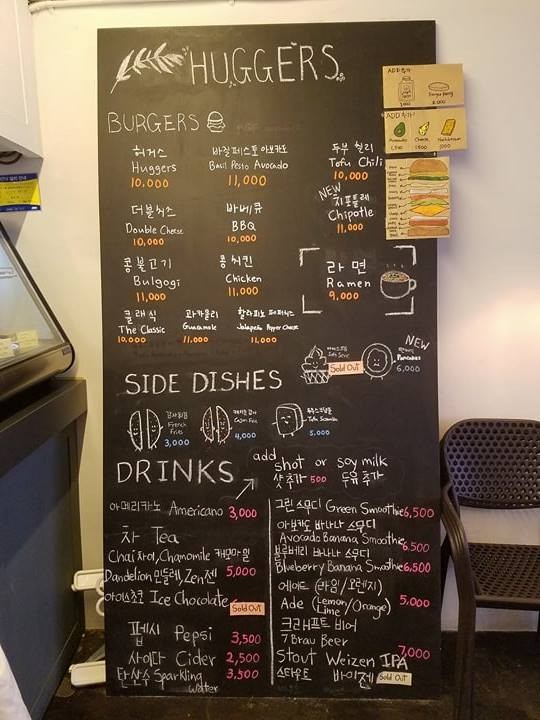 HUGGERS
BURGERS
허거스
Huggers
10,000
바질페스토 아보카도
Basil Pesto Avocado
11,000
두부 칠리
Tofu Chili
10,000
더블치즈
Double Cheese
10,000
바베큐
BBQ
10,000
NEW
치포틀레
Chipotle
11,000
콩불고기
Bulgogi
11,000
콩치킨
Chicken
11,000
라면
Ramen
9,000
클래식
The Classic
10,000
과카몰리
Guacamole
11,000
할라피뇨 페퍼치즈
Jalapeño Pepper Cheese
11,000
Sold Out
NEW
Pancakes
6,000
SIDE DISHES
French
Fries
3,000
Cajun Fries
4,000
Tofu
5,000
DRINKS
add
shot or soy milk
샷추가 500 두유 추가
아메리카노 Americano 3,000
차 Tea
Chai 차이, Chamomile 캐모마일
Dandelion 민들레, Zen젠 5,000
아이스초코 Ice Chocolate
Sold Out
펩시 Pepsi 3,500
사이다 Cider 2,500
탄산수 Sparkling 3,500
water
그린 스무디 Green Smoothie 6,500
아보카도 바나나 스무디
Avocado Banana Smoothie 6,500
블루베리 바나나 스무디
Blueberry Banana Smoothie 6,500
에이드 (라임/오렌지)
Ade (Lemon/Orange) 5,000
Lime
크래프트 비어
7 Brau Beer
7,000
Stout Weizen IPA
스타우트 바이젠 Sold Out
ADD 추가
ADD 추가!
Avocado
Cheese